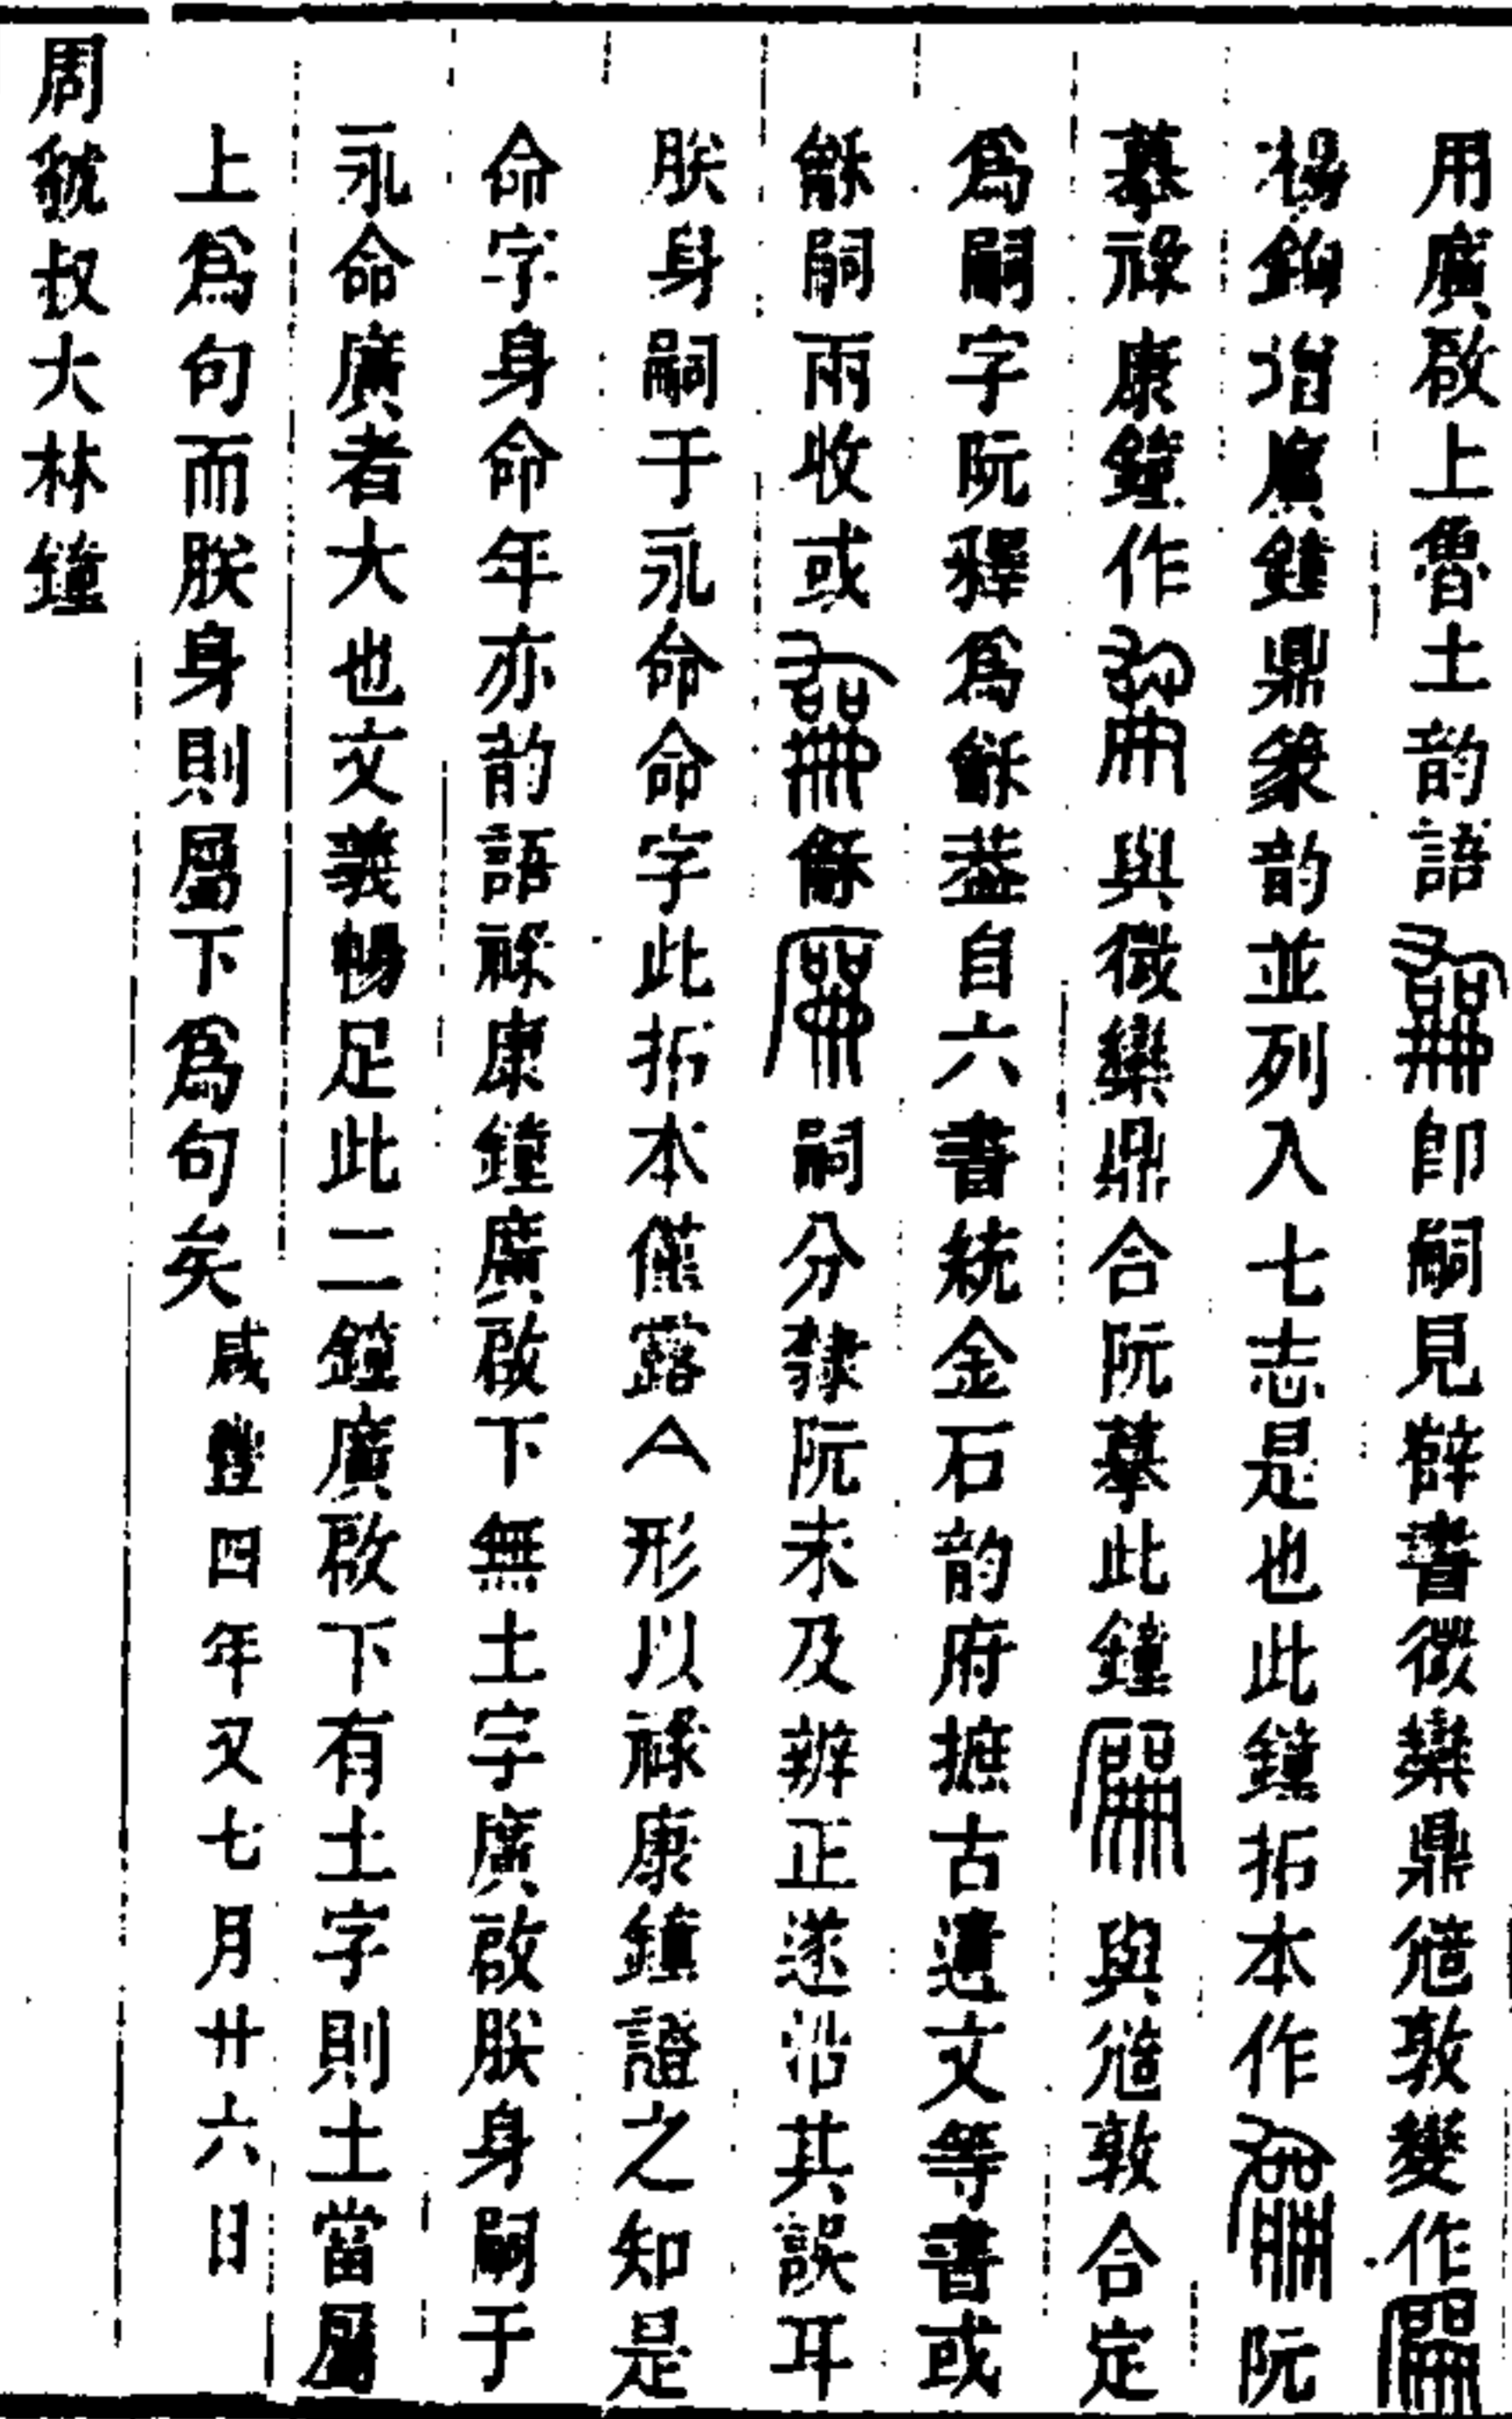 用廣啟上魯土韵語卽嗣見薛書微欒鼎𠨘敦變作
楊鉤增廣鐘鼎篆韵並列入七志是也此鐘拓本作阮
摹祿康鐘作與微欒鼎合阮摹此鐘與𠨘敦合定
爲嗣字阮釋爲龢葢自六書統金石韵府摭古遺文等書或
龢嗣兩收或龢嗣分隸阮未及辨正遂沿其誤耳
朕身嗣于永命命字此拓本僅露亼形以祿康鐘證之知是
命字身命年亦韵語祿康鐘廣啟下無土字廣啟朕身嗣于
永命廣者大也文義暢足此二鐘廣啟下有土字則土當屬
上爲句而朕身則屬下爲句矣咸豐四年又七月廿六日
周虢叔大林鐘